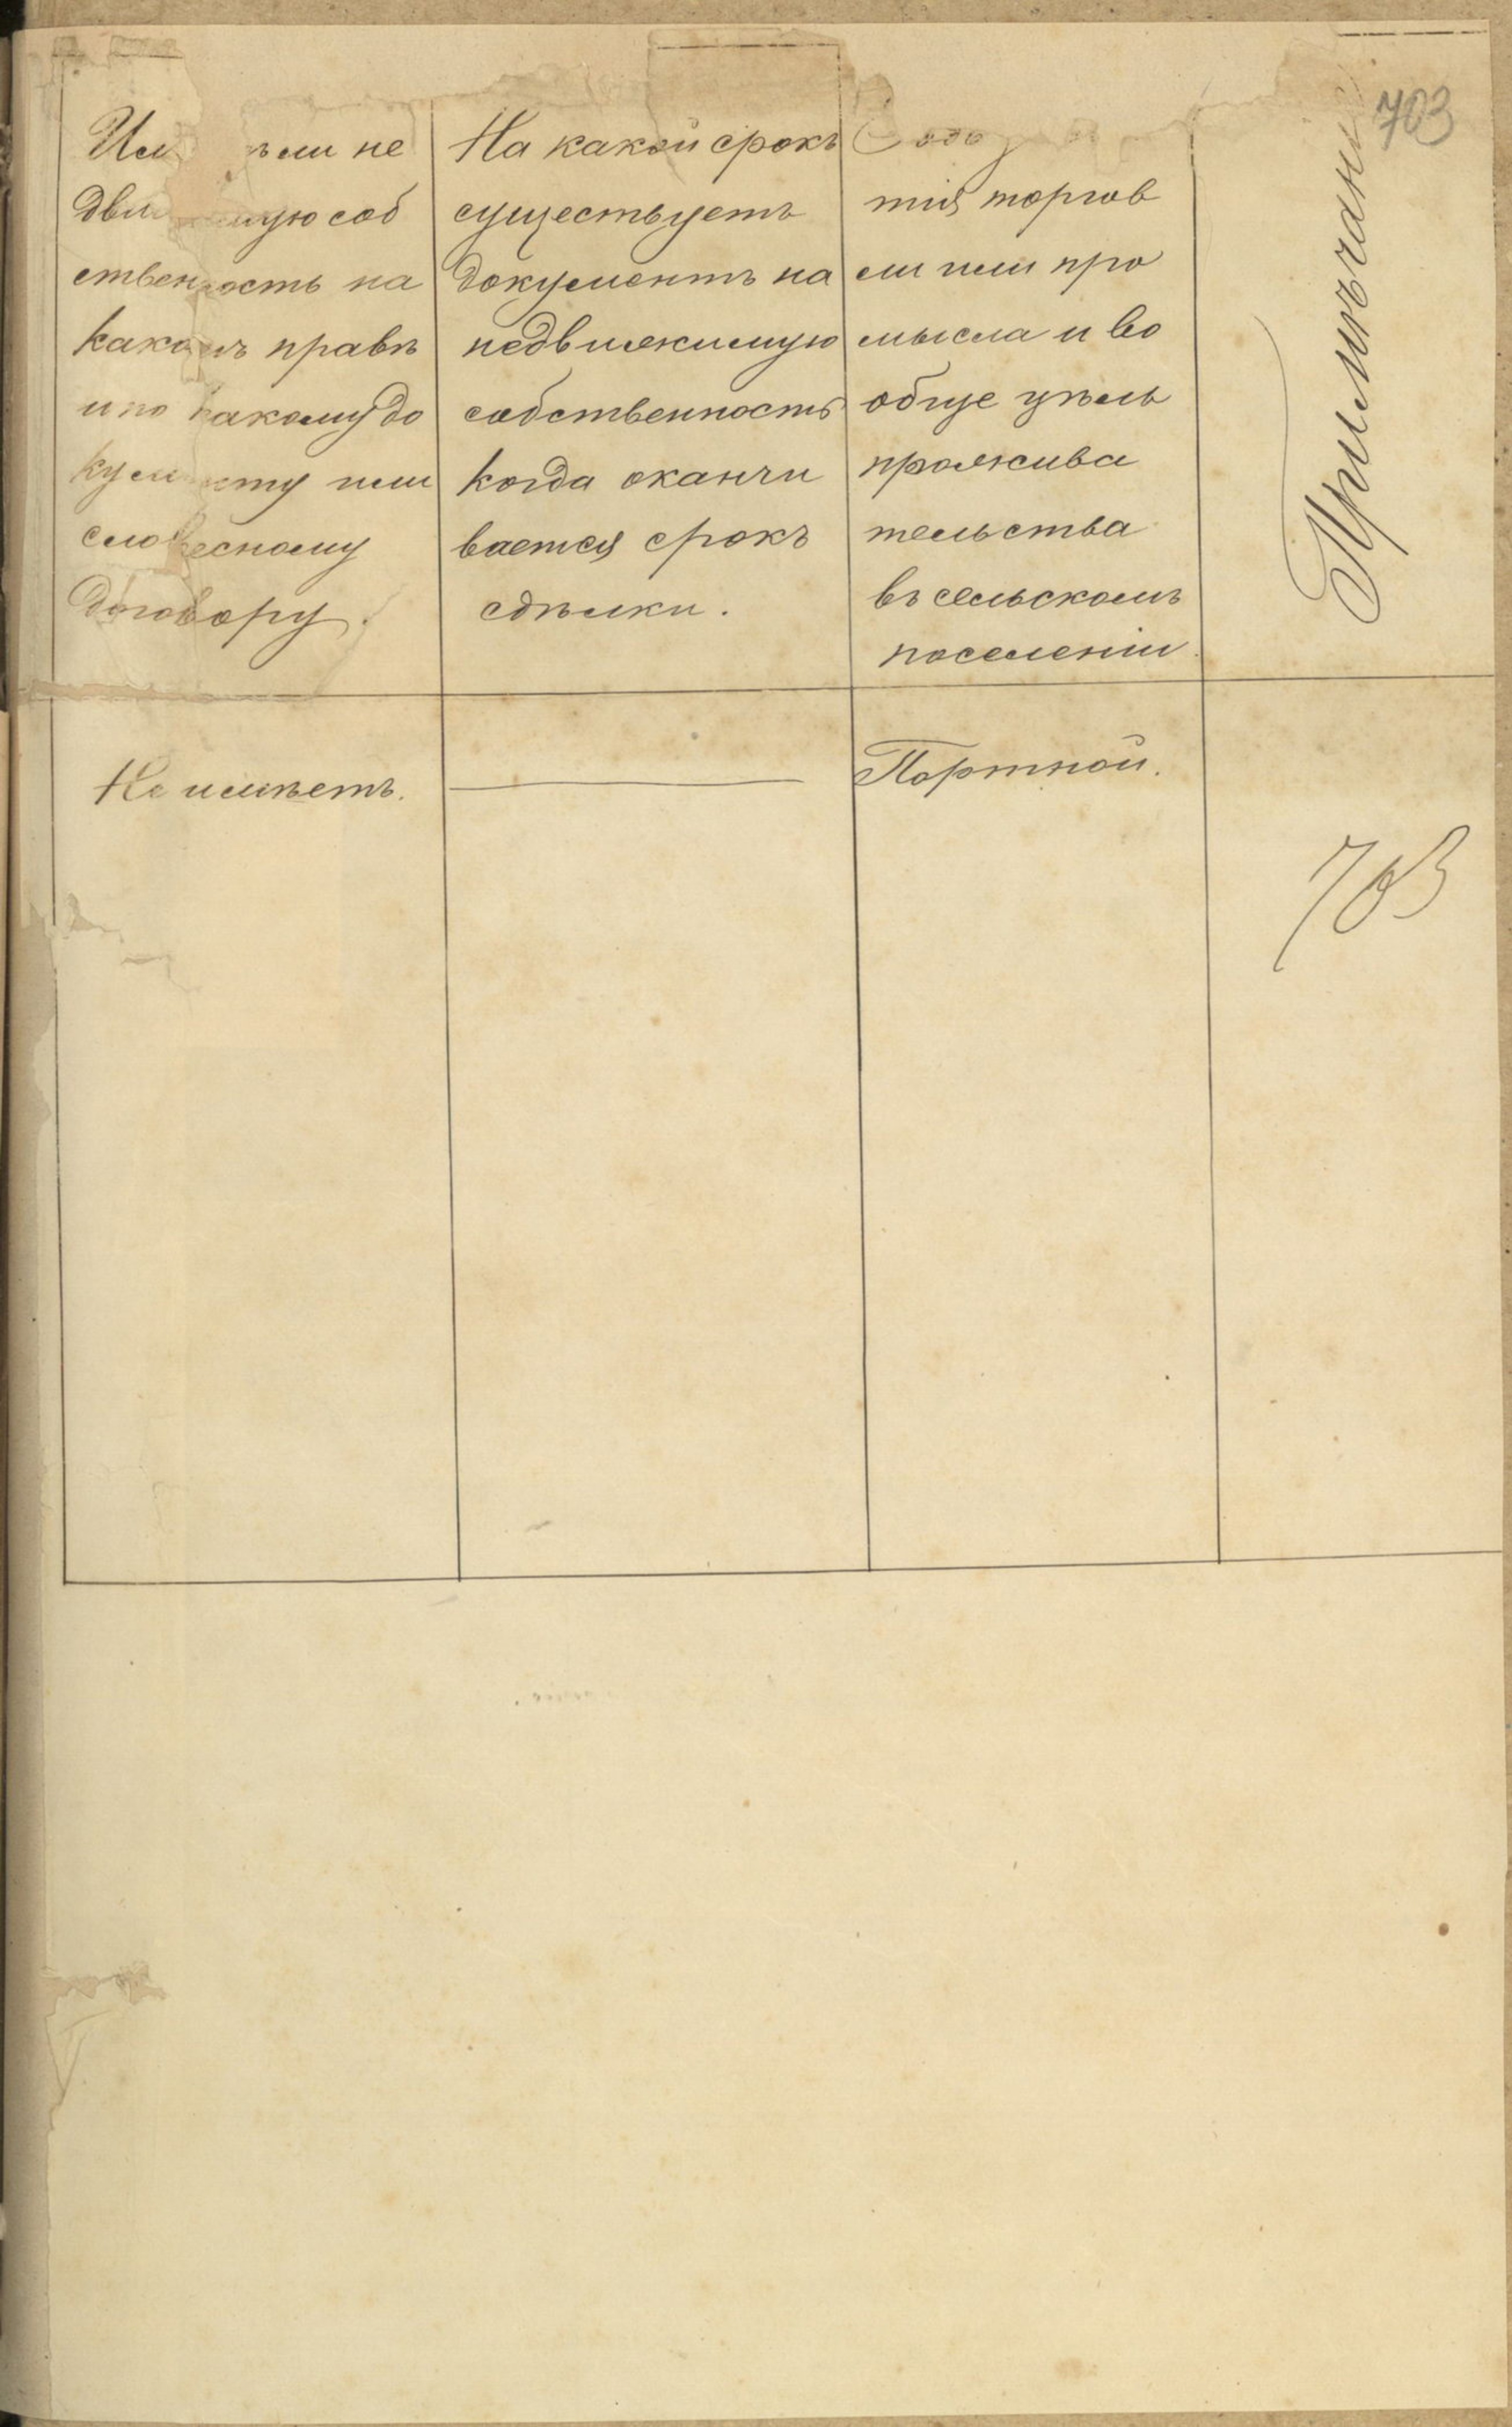 703
ли не
соб
ственность на
какомъ правѣ
и по какому до
кументу или
словесному
договору.
На какой срокъ
существуетъ
документъ на
недвижимую
собственность
когда оканчи
вается срокъ
сдѣлки.
тія торгов
ли или про
мысла и во
обще цѣль
прожива
тельства
въ сельскомъ
поселеніи.
Примѣчани
Не имѣетъ.
Портной.
703